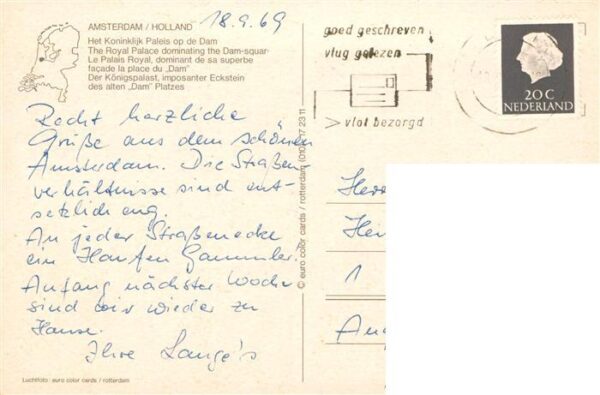 AMSTERDAM / HOLLAND
18.9.69
Het Koninklijk Paleis op de Dam
The Royal Palace dominating the Dam-squar
Le Palais Royal, dominant de sa superbe
façade la place du „Dam"
Der Königspalast, imposanter Eckstein
des alten „Dam" Platzes
Recht herzliche
Grüße aus dem schönen
Amsterdam. Die Straßen-
verhältnisse sind ent-
setzlich eng.
An jeder Straßenecke
ein Haufen Gammler.
Anfang nächster Woche
sind wir wieder zu
Hause.
Ihre Lange's
Luchtfoto: euro color cards / rotterdam
© euro color cards / rotterdam (010) 17 23 11
goed geschreven
vlug gelezen
vlot bezorgd
20 C
NEDERLAND
Herr
Hei
1